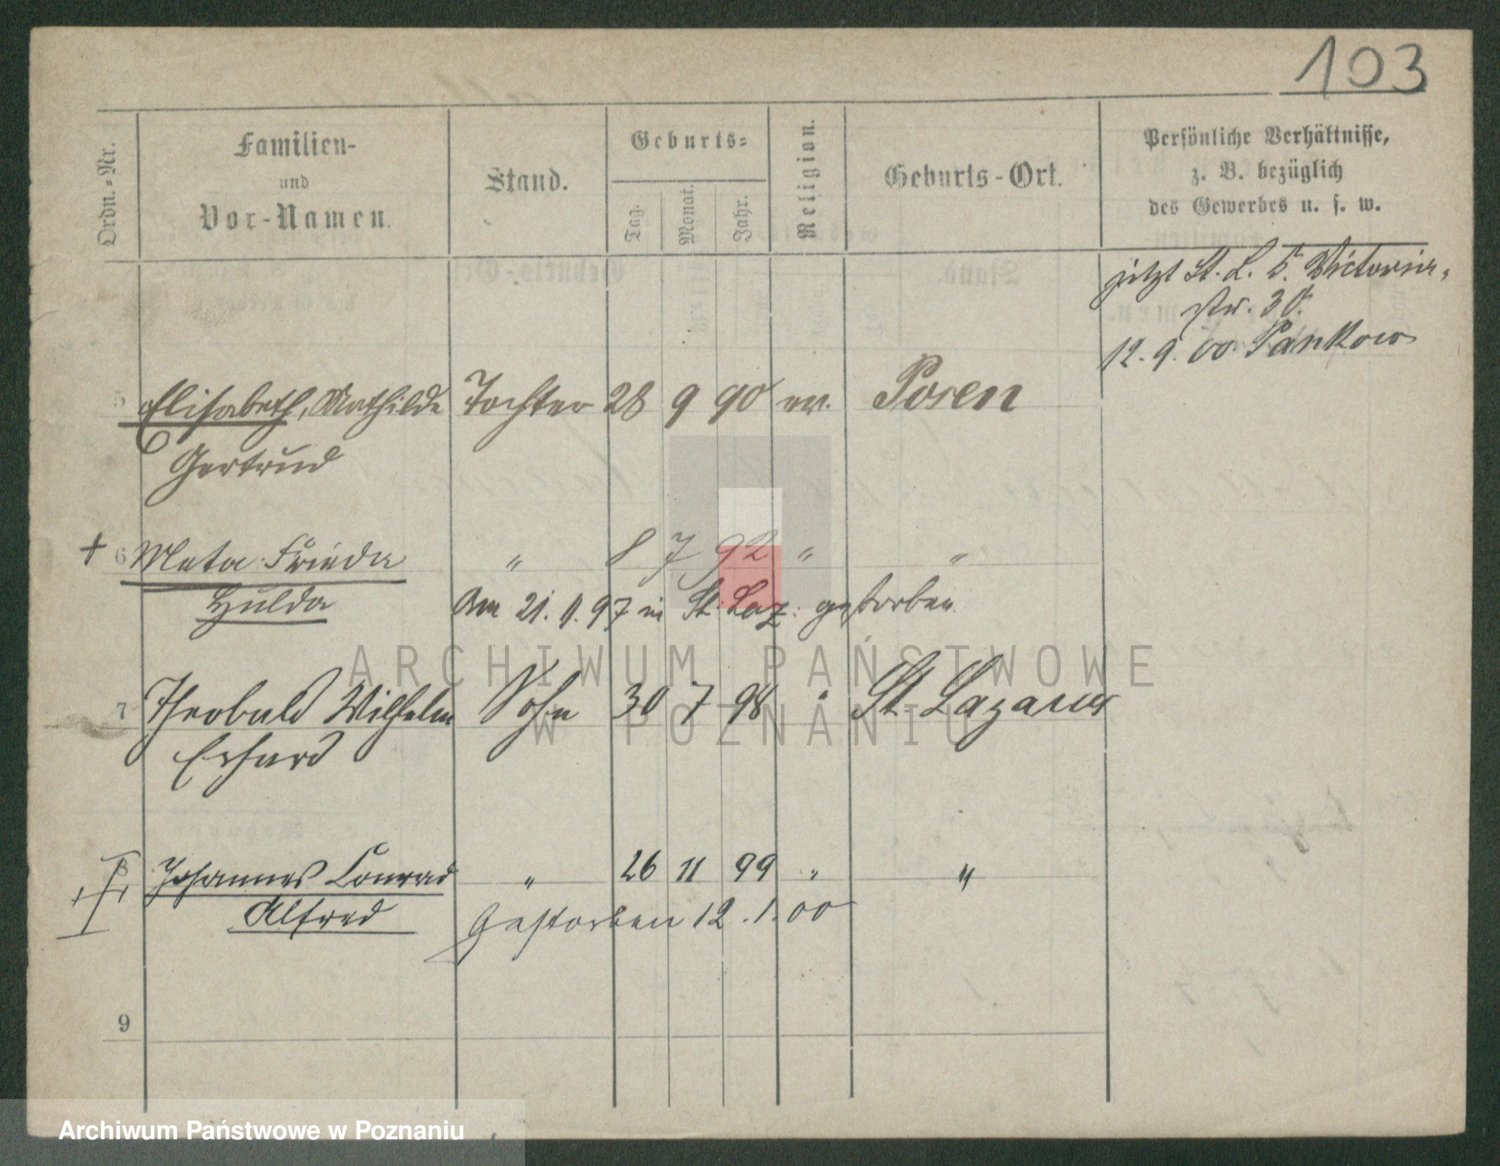 103
Ordn.-Nr.
Familien-
und
Vor-Namen.
Stand.
Geburts-
Tag.
Monat.
Jahr.
Religion.
Geburts-Ort.
Persönliche Verhältnisse,
z. B. bezüglich
des Gewerbes u. s. w.
jetzt St. L. 5. Victoria-
str. 30.
12. 9. 00 Pankow
5 Elisabeth, Mathilde Tochter 28 9 90 ev. Posen
Gertrud
+ 6 Meta Frieda " 8 7 92 " "
Hulda Am 21. 11. 97 in St. Laz: gestorben
7 Theobald Wilhelm Sohn 30 7 98 " St. Lazarus
Erhard
8 Johannes Conrad " 26 11 99 " "
Alfred Gestorben 12. 1. 00
9
ARCHIWUM PAŃSTWOWE
W POZNANIU
Archiwum Państwowe w Poznaniu